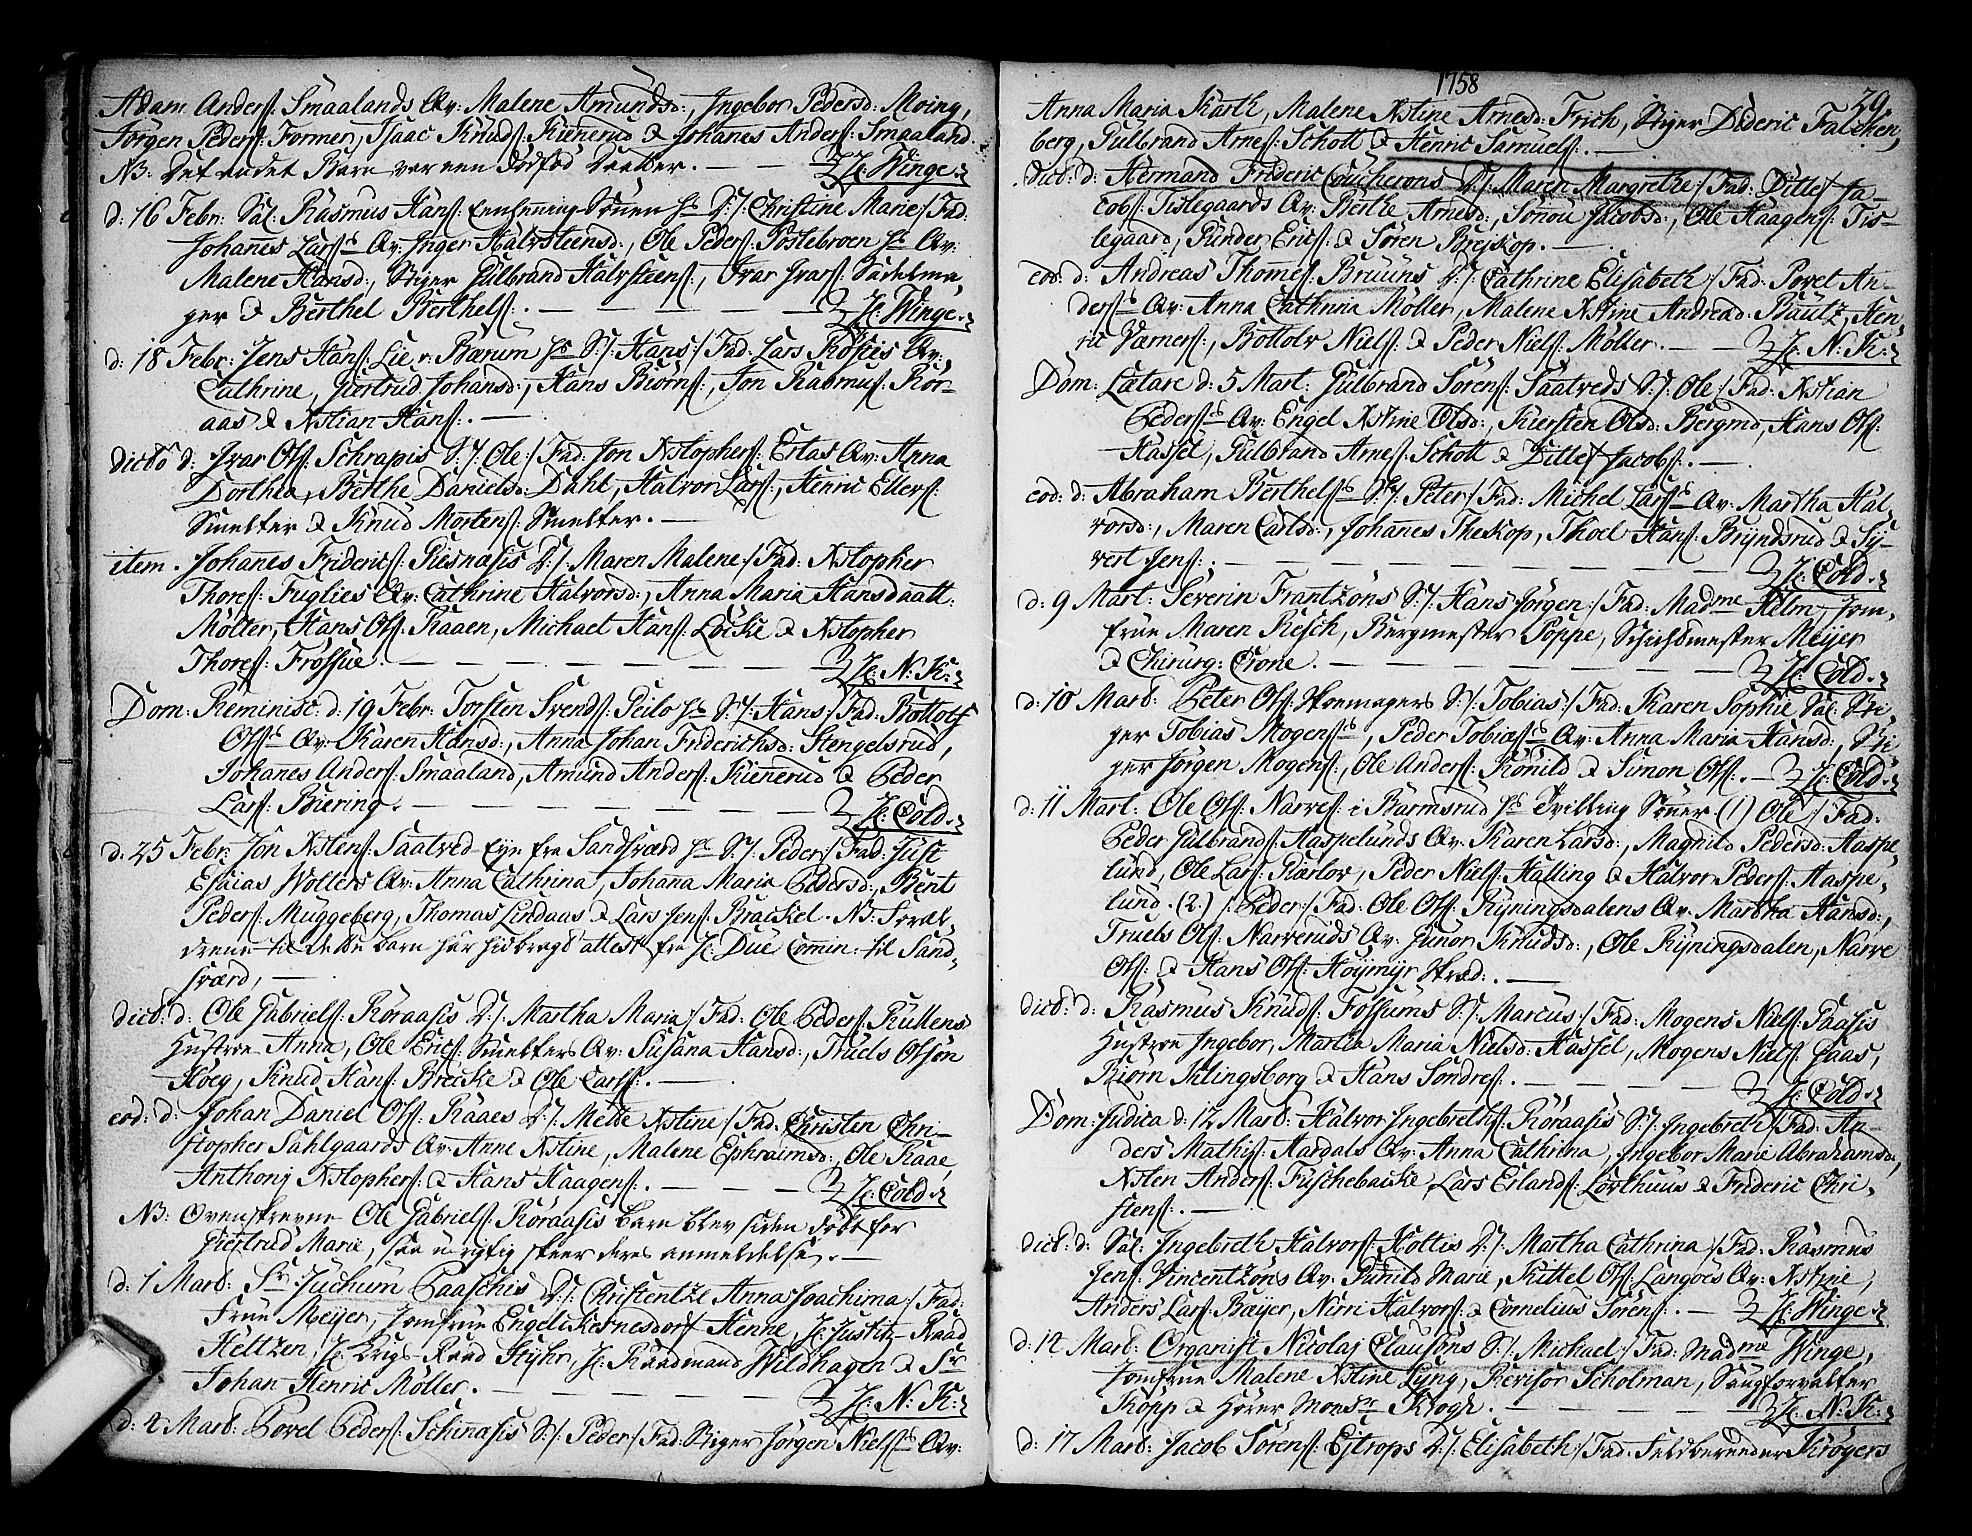 Adam Anders: Smaalands Qv: Malene Amundsd:, Ingebor Pedersd: Moing,
Jørgen Peders: Former, Isaac Knuds: Kienerud & Johanes Anders: Smaaland.
NB: Det andet Barn var een dødfød Daatter. — H: Winge.
d: 16 Febr: Sal: Rasmus Hans: Søuen hs D:/: Christine Marie:/ Fad:
Johanes Lars:s Qv: Inger Halvsteensd:, Ole Peders: Postebroen hs Qv:
Malene Hansd:, Stiger Gulbrand Halvsteens:, Ivar Ivars: Sadelma-
ger & Berthel Berthels:. — H: Winge.
d: 18 Febr: Jens Hans: Lie v: Bærum hs S:/: Hans:/ Fad: Lars Kosies Qv:
Cathrine, Giertrud Johansd:, Hans Biørns:, Jon Rasmus: Rør-
aas & Xstian Hans:. —
dicto d: Ivar Ols: Schrapis S:/ Ole:/ Fad: Jon Xstophers: Ertas Qv: Anna
Dorthea, Berthe Danielsd: Dahl, Halvor Lars:, Henric Ellers:
Smelter & Knud Mortens: Smelter. —
item. Johanes Frideric: Riesnasis D:/: Maren Malene:/ Fad: Xstopher
Thores: Fuglies Qv: Cathrine Halvorsd:, Anna Maria Hansdaatt:
Møller, Hans Ols: Raaen, Michael Hans: Løcke & Xstopher
Thores: Frossue. — H: N: K:
Dom: Reminisc: d: 19 Febr: Torsten Svends: Peilo hs S:/: Hans:/ Fad: Bottolf
Ols:s Qv: Karen Hansd:, Anna Johan Friderichsd: Stengelsrud,
Johanes Anders: Smaaland, Amund Anders: Kienerud & Peder
Lars: Biering. — H: Cold.
d: 25 Febr: Jon Xstens: Saatved fra Sandsværd hs S:/: Peder:/ Fad: Just
Esaias Wollers Qv: Anna Cathrina, Johana Maria Pedersd:, Bent
Peders: Muggeberg, Thomas Lindaas & Lars Jens: Brackel. NB: Foræl-
drene til dette barn har hidbragt attest fra H: Due Comin: til Sand-
sværd, —
dict: d: Ole Gabriels: Røraasis D:/: Martha Maria:/ Fad: Ole Peders: Kullens
Hustroe Anna, Ole Erics: Smelters Qv: Susana Hansd:, Truels Olsøn
Høeg, Knud Hans: Brecke & Ole Carls:. —
eod: d: Johan Daniel Ols: Raaes D:/: Mette Xstine:/ Fad: Christen Chri-
stopher Sahlgaards Qv: Anne Xstine, Malene Ephraimsd:, Ole Raae,
Anthony Xstophers: & Hans Haagens:. — H: Cold.
NB: Ovenskrevne Ole Gabriels: Røraasis barn blev siden døbt for
Giertrud Marie, saa urigtig skeer deres anmeldelse. —
d: 1 Mart: Sr: Juchum Paaschis D:/: Christentze Anna Joachima:/ Fad:
Frue Meyer, Jomfrue Engelicke Nesdorf Henne, H: Justitz-Raad
Heltzen, H: Krigs-Raad Styhr, H: Raadmand Wildhagen & Sr
Johan Henric Møller. — H: N: K:
d: 4 Mart: Povel Peders: Schinasis S:/: Peder:/ Fad: Stiger Jørgen Niels:s Qv:
1758
29.
Anna Maria Karth, Malene Xstine Arnesd: Frich, Stiger Dideric Falcken-
berg, Gulbrand Arnes: Schott & Henric Samuels:. —
dict: d: Hermand Frideric Coucherons D:/: Maren Margrethe:/ Fad: Ditlef Ja-
cobs: Tislegaards Qv: Berthe Arnesd:, Sønou Jacobsd:, Ole Haagens: Tis-
legaard, Gunder Erics: & Søren Brejskop. —
eod: d: Andreas Thomes: Bruuns D:/: Cathrine Elisabeth:/ Fad: Povel An-
ders:s Qv: Anna Cathrina Møller, Malene Xstine Andread: Bautz, Hen-
ric Værners:, Bottolv Niels: & Peder Niels: Møller. — H: N: K:
Dom: Lætare d: 5 Mart: Gulbrand Sørens: Saatveds S:/: Ole:/ Fad: Xstian
Peders:s Qv: Engel Xstine Olsd:, Kiersten Olsd: Bergmd, Hans Ols:
Hassel, Gulbrand Arnes: Schott & Ditlef Jacobs:. —
eod: d: Abraham Berthels:s S:/: Peter:/ Fad: Michel Lars:s Qv: Martha Hal-
vorsd:, Maren Carlsd:, Johanes Theskop, Thoel Hans: Bryndsrud & Sy-
vert Jens:. — H: Cold.
d: 9 Mart: Severin Frantzøns S:/: Hans Jørgen:/ Fad: Madme Helm, Jom-
frue Maren Resch, Bergmester Poppe, Schichtmester Meyer
& Chirurg: Crone. — H: Cold.
d: 10 Mart: Peter Ols: Skoemagers S:/: Tobias:/ Fad: Karen Sophie Sal: Sti-
ger Tobias Mogens:s, Peder Tobies:s Qv: Anna Maria Hansd:, Sti-
ger Jørgen Mogens:, Ole Anders: Rønild & Simon Ols:. — H: Cold.
d: 11 Mart: Ole Ols: Narves: i Barmsrud hs Tvilling Sønner (1) Ole:/ Fad:
Peder Gulbrands: Haspelunds Qv: Karen Larsd:, Magnild Pedersd: Haspe-
lund, Ole Lars: Kiærlov, Peder Niels: Halling & Halvor Peders: Haspe-
lund. (2.) /: Peder:/ Fad: Ole Ols: Ryningsdalens Qv: Martha Hansd:,
Truels Ols: Narveruds Qv: Gunor Knudsd:, Ole Ryningsdalen, Narve
Ols: & Hans Ols: Høymyr Skræd:. —
dict: d: Rasmus Knuds: Fossums S:/: Marcus:/ Fad: Mogens Niels: Paasis
Hustroe Ingebor, Martha Maria Nielsd: Hassel, Mogens Niels: Paas,
Biørn Klingsborg & Hans Sondres:. — H: Cold.
Dom: Judica d: 12 Mart: Halvor Ingebreths: Røraasis S:/: Ingebreth:/ Fad: An-
ders Mathis: Aardals Qv: Anna Cathrina, Ingebor Marie Abrahamsd:,
Xsten Anders: Fuschebacke, Lars Erlands: Lorthuus & Frideric Chri-
stens:. —
dict: d: Sal: Ingebreth Halvors: Holtis D:/: Martha Cathrina:/ Fad: Rasmus
Jens: Vincentzøns Qv: Gunild Marie, Kittel Ols: Langoes Qv: Xstine,
Anders Lars: Bæyer, Nirri Halvors: & Cornelius Sørens:. — H: Winge.
d: 14 Mart: Organist Nicolaj Clausøns S:/: Michael:/ Fad: Madme Winge,
Jomfrue Malene Xstine Lyng, Revisor Scholman, Saugforvalter
Kopp & Hører Monsr Krogh. — H: N: K:
d: 17 Mart: Jacob Sørens: Ejstrops D:/: Elisabeth:/ Fad: Feldbereeder Krøgers